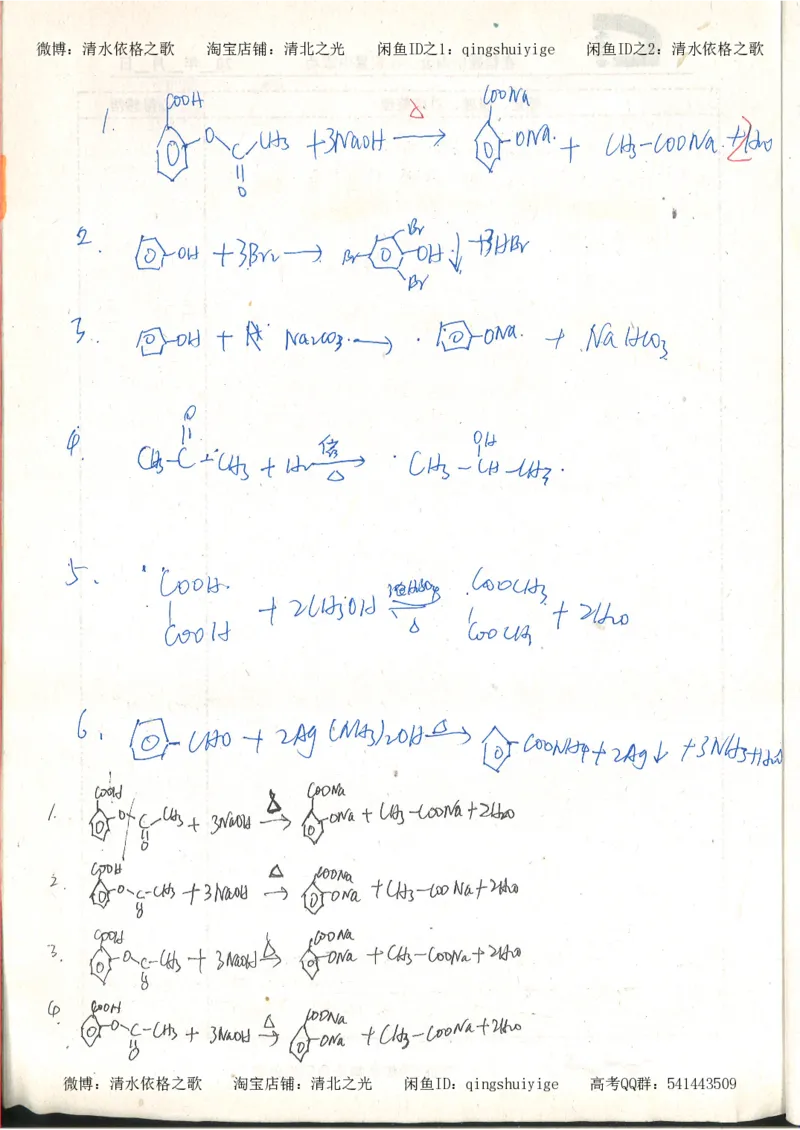 微博：清水依格之歌 淘宝店铺：清北之光 闲鱼ID之1：qingshuiyige 闲鱼ID之2：清水依格之歌
1. COOH O C CH3 O +3NaOH △ → COONa ONa + CH3-COONa + 2H2O
2. OH +3Br2 → Br Br OH Br ↓ +3HBr
3. OH + Na2CO3 → ONa + NaHCO3
4. CH3-C-CH3 O + H2 催 △ → CH3-CH-CH3 OH
5. COOH COOH + 2CH3OH 浓H2SO4 △ ⇌ COOCH3 COOCH3 + 2H2O
6. CHO + 2Ag(NH3)2OH △ → COONH4 + 2Ag↓ +3NH3+H2O
1. COOH O C CH3 O + 3NaOH △ → COONa ONa + CH3-COONa + 2H2O
2. COOH O C-CH3 O + 3NaOH △ → COONa ONa + CH3-COONa + 2H2O
3. COOH O C-CH3 O + 3NaOH △ → COONa ONa + CH3-COONa + 2H2O
4 COOH O C-CH3 O + 3NaOH △ → COONa ONa + CH3-COONa + 2H2O
微博：清水依格之歌 淘宝店铺：清北之光 闲鱼ID：qingshuiyige 高考QQ群：541443509